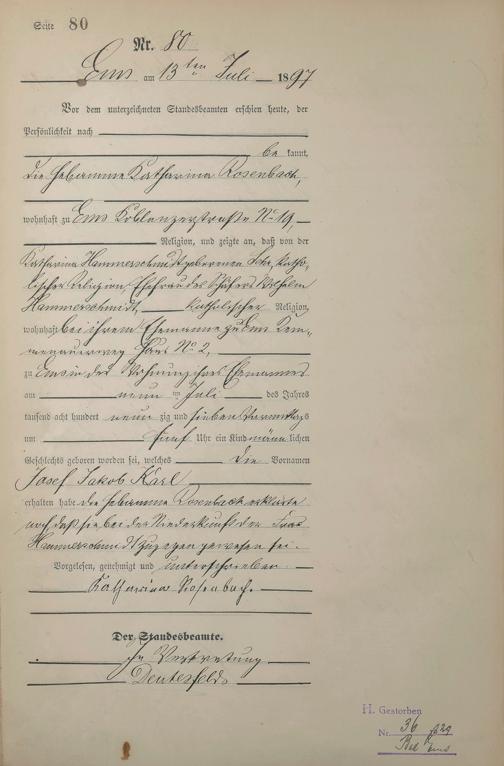 Seite 80
Nr. 80
Ems am 13ten Juli 1897
Vor dem unterzeichneten Standesbeamten erschien heute, der
Persönlichkeit nach
be kannt,
die Hebamme Katharina Rosenbach,
wohnhaft zu Ems Koblenzerstraße No 19,
Religion, und zeigte an, daß von der
Katharina Hammerschmidt geborenen katho-
lischer Religion Ehefrau des Wilhelm
Hammerschmidt, katholischer Religion,
wohnhaft bei ihrem Ehemanne zu Ems Kem-
menauerweg Haus No 2,
zu Ems in der Wohnung ihres Ehemannes
am neun ten Juli des Jahres
tausend acht hundert neun zig und sieben Vormittags
um fünf Uhr ein Kind männ lichen
Geschlechts geboren worden sei, welches die Vornamen
Josef Jakob Karl
erhalten habe die Hebamme Rosenbach erklärte
noch daß sie bei der Niederkunft der Frau
Hammerschmidt zugegen gewesen sei.
Vorgelesen, genehmigt und unterschrieben
Katharina Rosenbach.
Der Standesbeamte.
In Vertretung
H. Gestorben
Nr. 36